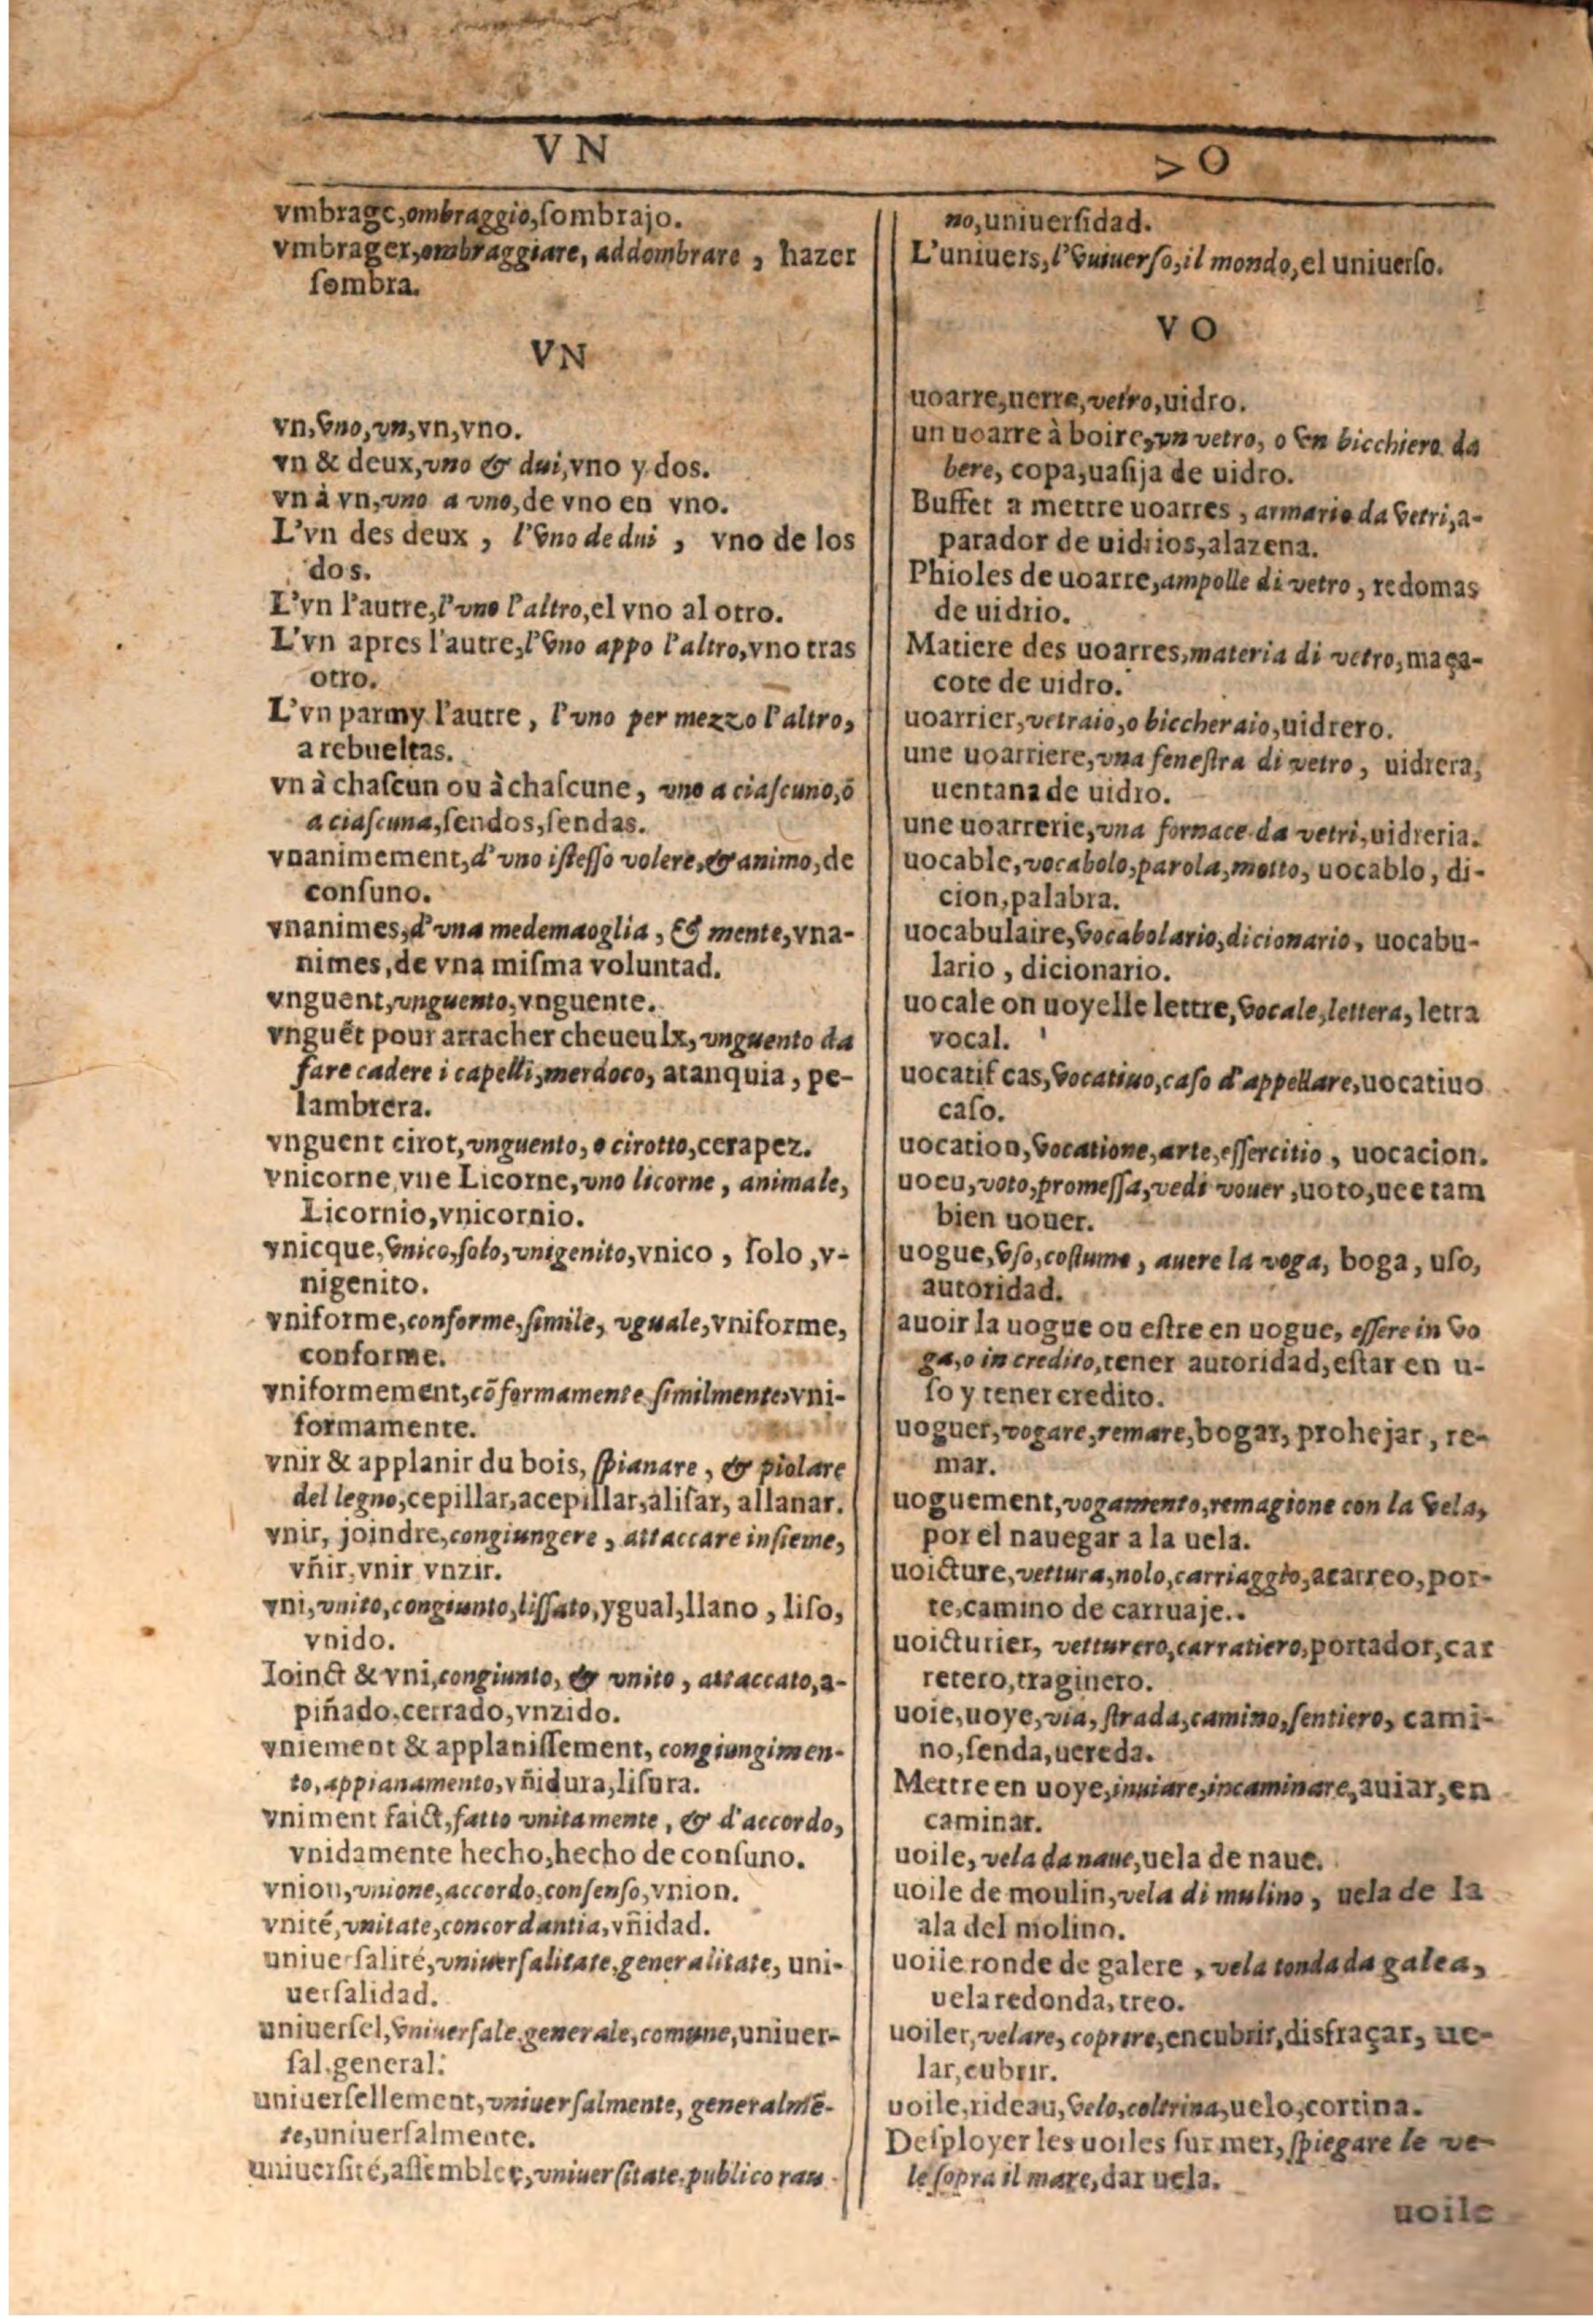 VN
VO
vmbrage, ombraggio, ſombrajo.
vmbrager, ombraggiare, addombrare, hazer
ſombra.
VN
vn, vno, vn, vn, vno.
vn & deux, vno & dui, vno y dos.
vn à vn, vno a vno, de vno en vno.
L'vn des deux, l'vno de dui, vno de los
dos.
L'vn l'autre, l'vno l'altro, el vno al otro.
L'vn apres l'autre, l'vno appo l'altro, vno tras
otro.
L'vn parmy l'autre, l'vno per mezzo l'altro,
a rebueltas.
vn à chaſcun ou à chaſcune, vno a ciaſcuno, ò
a ciaſcuna, ſendos, ſendas.
vnanimement, d'vno iſteſſo volere, & animo, de
conſuno.
vnanimes, d'vna medemaoglia, & mente, vna-
nimes, de vna miſma voluntad.
vnguent, vnguento, vnguente.
vnguẽt pour arracher cheueulx, vnguento da
fare cadere i capelli, merdoco, atanquia, pe-
lambrera.
vnguent cirot, vnguento, o cirotto, cerapez.
vnicorne, vne Licorne, vno licorne, animale,
Licornio, vnicornio.
vnicque, vnico, ſolo, vnigenito, vnico, ſolo, v-
nigenito.
vniforme, conforme, ſimile, vguale, vniforme,
conforme.
vniformement, cõformamente ſimilmente, vni-
formamente.
vnir & applanir du bois, ſpianare, & piolare
del legno, cepillar, acepillar, aliſar, allanar.
vnir, joindre, congiungere, attaccare inſieme,
vñir, vnir vnzir.
vni, vnito, congiunto, liſſato, ygual, llano, liſo,
vnido.
Ioinct & vni, congiunto, & vnito, attaccato, a-
piñado, cerrado, vnzido.
vniement & applaniſſement, congiungimen-
to, appianamento, vñidura, liſura.
vniment faict, fatto vnitamente, & d'accordo,
vnidamente hecho, hecho de conſuno.
vnion, vnione, accordo, conſenſo, vnion.
vnité, vnitate, concordantia, vñidad.
uniuerſalité, vniuerſalitate, generalitate, uni-
uerſalidad.
uniuerſel, vniuerſale, generale, comune, uniuer-
ſal, general.
uniuerſellement, vniuerſalmente, generalmẽ-
te, uniuerſalmente.
uniuerſité, aſſemblee, vniuerſitate, publico rau
no, uniuerſidad.
L'uniuers, l'vniuerſo, il mondo, el uniuerſo.
VO
uoarre, uerre, vetro, uidro.
un uoarre à boire, vn vetro, o vn bicchiero da
bere, copa, uaſija de uidro.
Buffet a mettre uoarres, armario da vetri, a-
parador de uidrios, alazena.
Phioles de uoarre, ampolle di vetro, redomas
de uidrio.
Matiere des uoarres, materia di vetro, maça-
cote de uidro.
uoarrier, vetraio, o biccheraio, uidrero.
une uoarriere, vna feneſtra di vetro, uidrera,
uentana de uidro.
une uoarrerie, vna fornace da vetri, uidreria.
uocable, vocabolo, parola, motto, uocablo, di-
cion, palabra.
uocabulaire, vocabolario, dicionario, uocabu-
lario, dicionario.
uocale on uoyelle lettre, vocale, lettera, letra
vocal.
uocatif cas, vocatiuo, caſo d'appellare, uocatiuo
caſo.
uocation, vocatione, arte, eſſercitio, uocacion.
uoeu, voto, promeſſa, vedi vouer, uoto, uee tam
bien uouer.
uogue, vſo, coſtume, auere la voga, boga, uſo,
autoridad.
auoir la uogue ou eſtre en uogue, eſſere in vo
ga, o in credito, tener autoridad, eſtar en u-
ſo y tener credito.
uoguer, vogare, remare, bogar, prohejar, re-
mar.
uoguement, vogamento, remagione con la vela,
por el nauegar a la uela.
uoicture, vettura, nolo, carriaggio, acarreo, por-
te, camino de carruaje.
uoicturier, vetturero, carratiero, portador, car
retero, traginero.
uoie, uoye, via, ſtrada, camino, ſentiero, cami-
no, ſenda, uereda.
Mettre en uoye, inuiare, incaminare, auiar, en
caminar.
uoile, vela da naue, uela de naue.
uoile de moulin, vela di mulino, uela de la
ala del molino.
uoile ronde de galere, vela tonda da galea,
uela redonda, treo.
uoiler, velare, coprire, encubrir, disfraçar, ue-
lar, cubrir.
uoile, rideau, velo, coltrina, uelo, cortina.
Deſployer les uoiles ſur mer, ſpiegare le ve-
le ſopra il mare, dar uela.
uoile